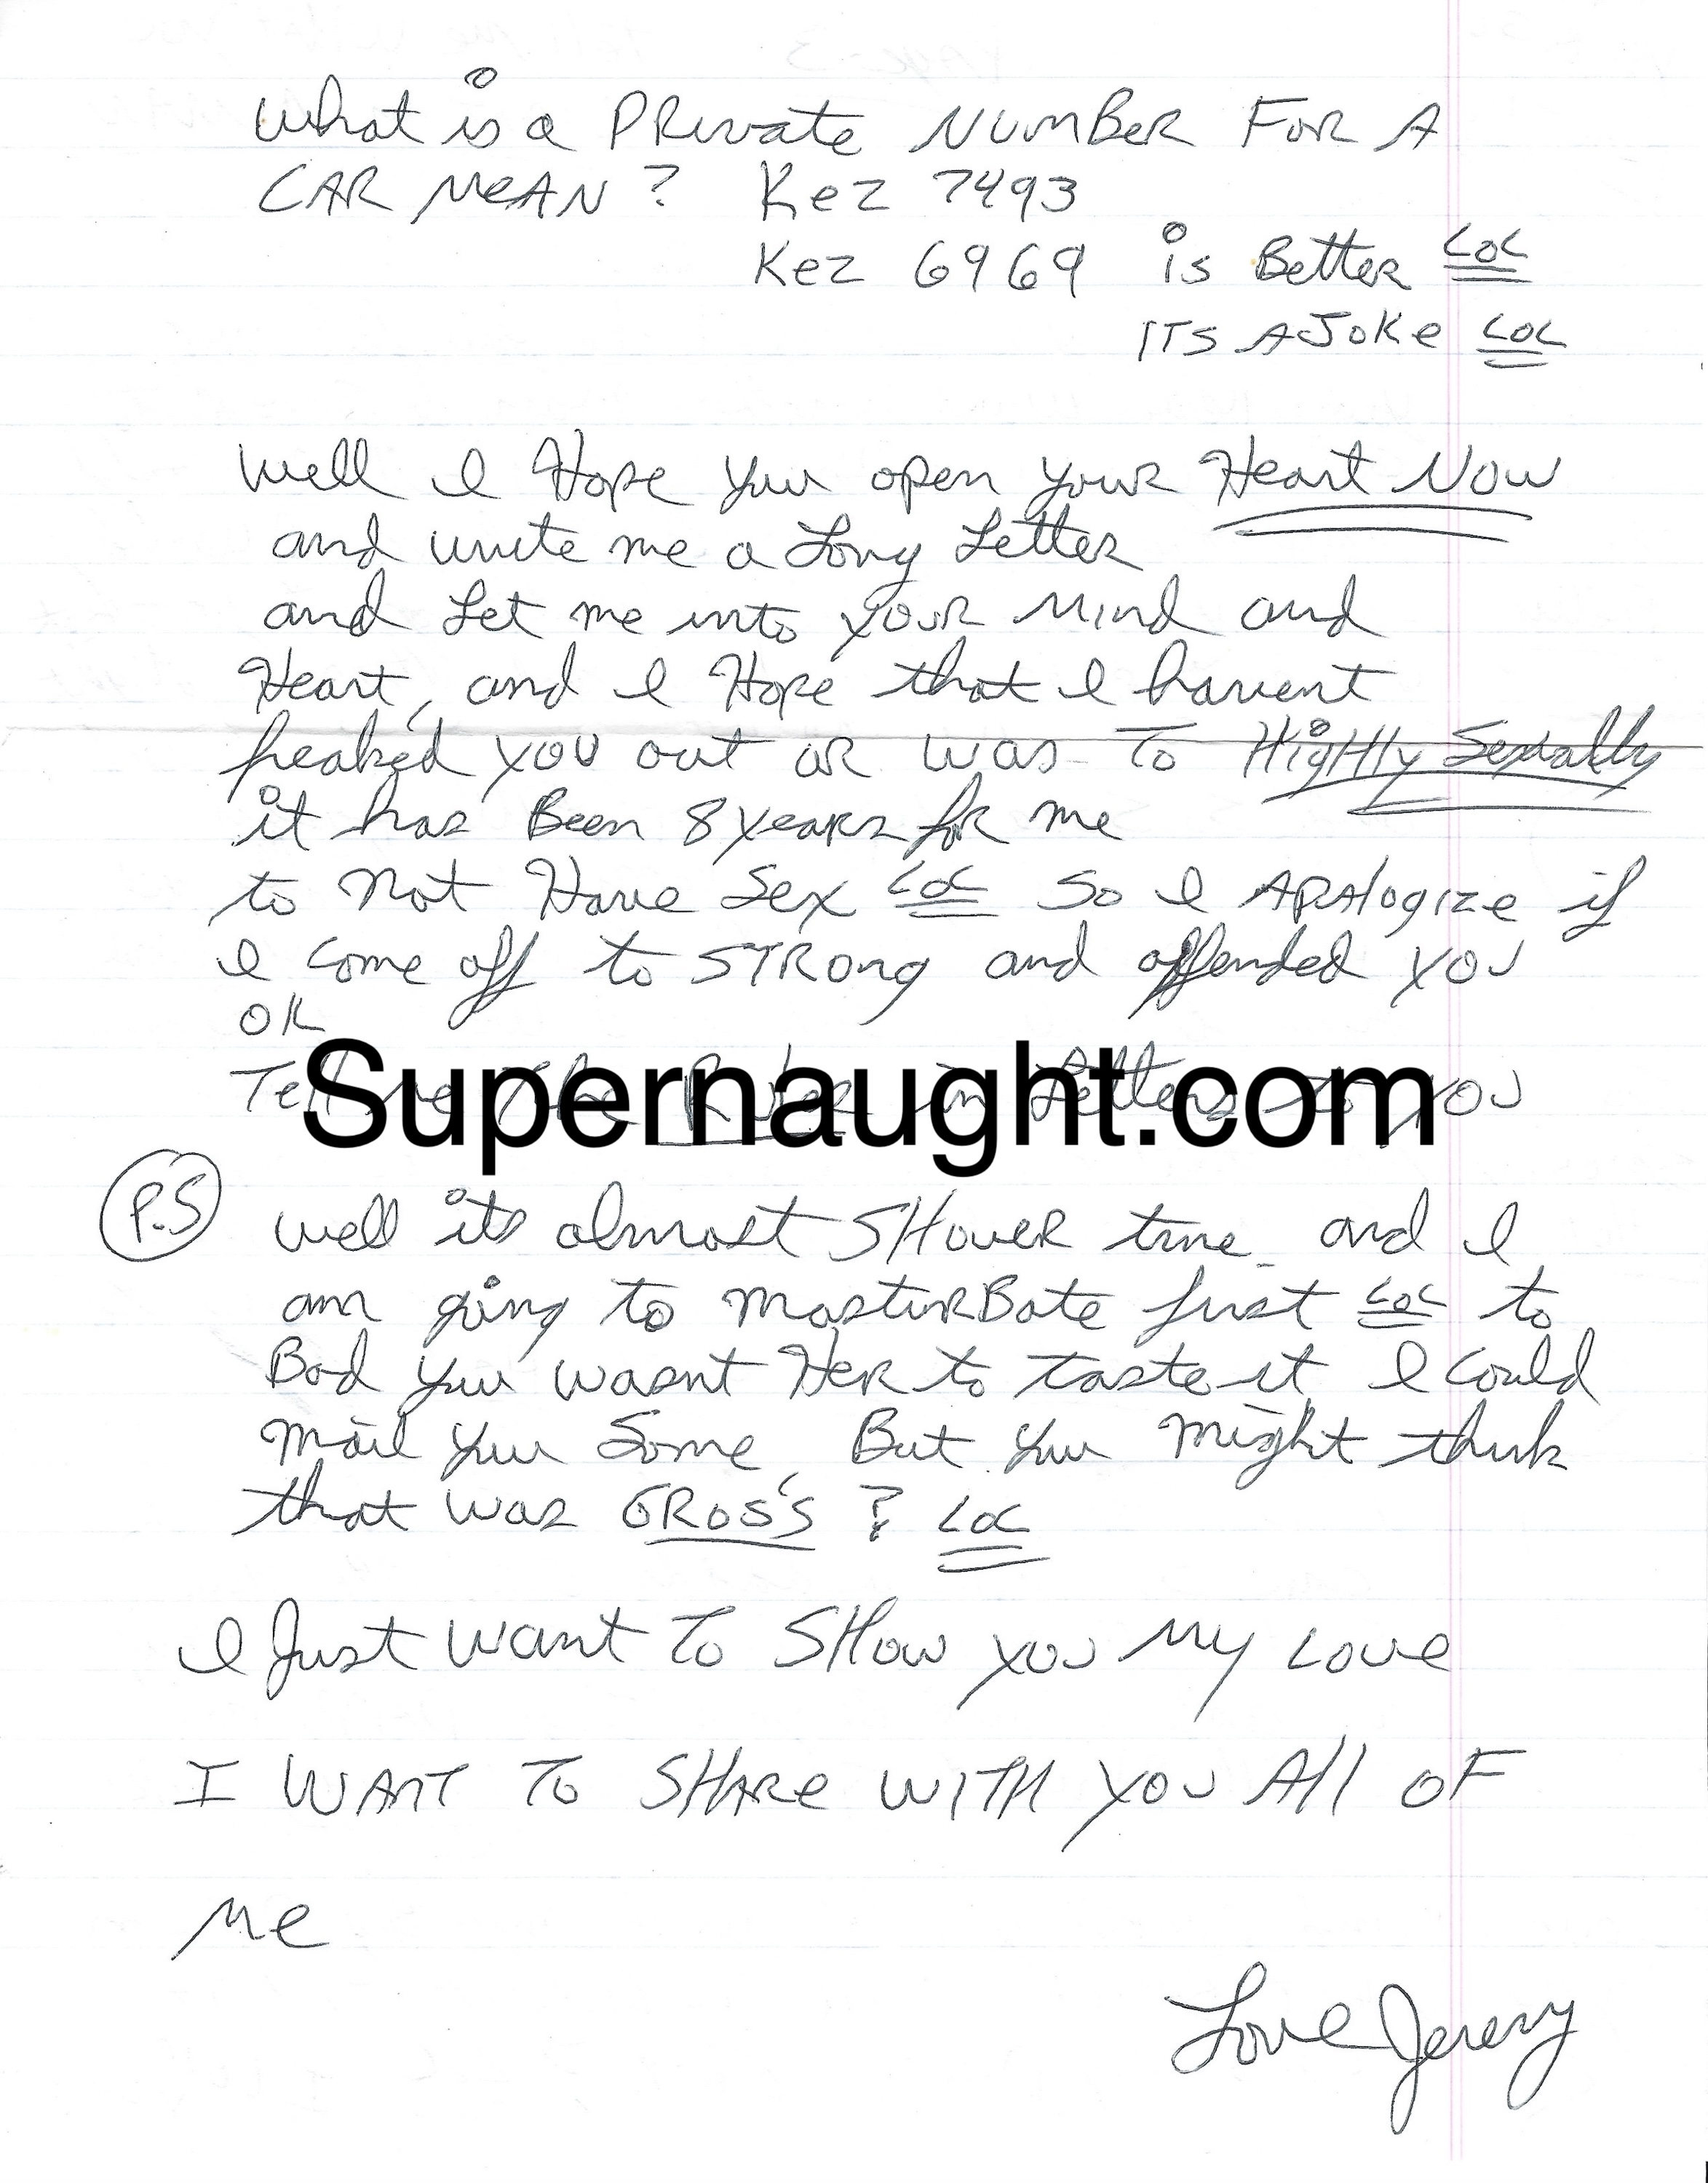 What is a PRivate NUMBER FOR A
CAR MEAN? Kez 7493
Kez 6969 is Better LOL
ITS A JOKE LOL
Well I Hope you open your Heart Now
and write me a Long Letter
and Let me into your Mind and
Heart, and I Hope that I havent
freaked you out or was To HigHly Sexually
it has Been 8 years for me
to not Have Sex LOL So I APAlogize if
I come off to STRong and offended you
OK
Tell me The Rules in Letters to you
Supernaught.com
P.S Well its almost SHower time and I
am going to masturBate first LOL to
Bad you wasnt Her to taste it I could
mail you Some, But you might think
that was GROSS? LOL
I Just Want To SHow you My Love
I WANT To SHARe WITH YOU All OF
Me
Love Jeremy